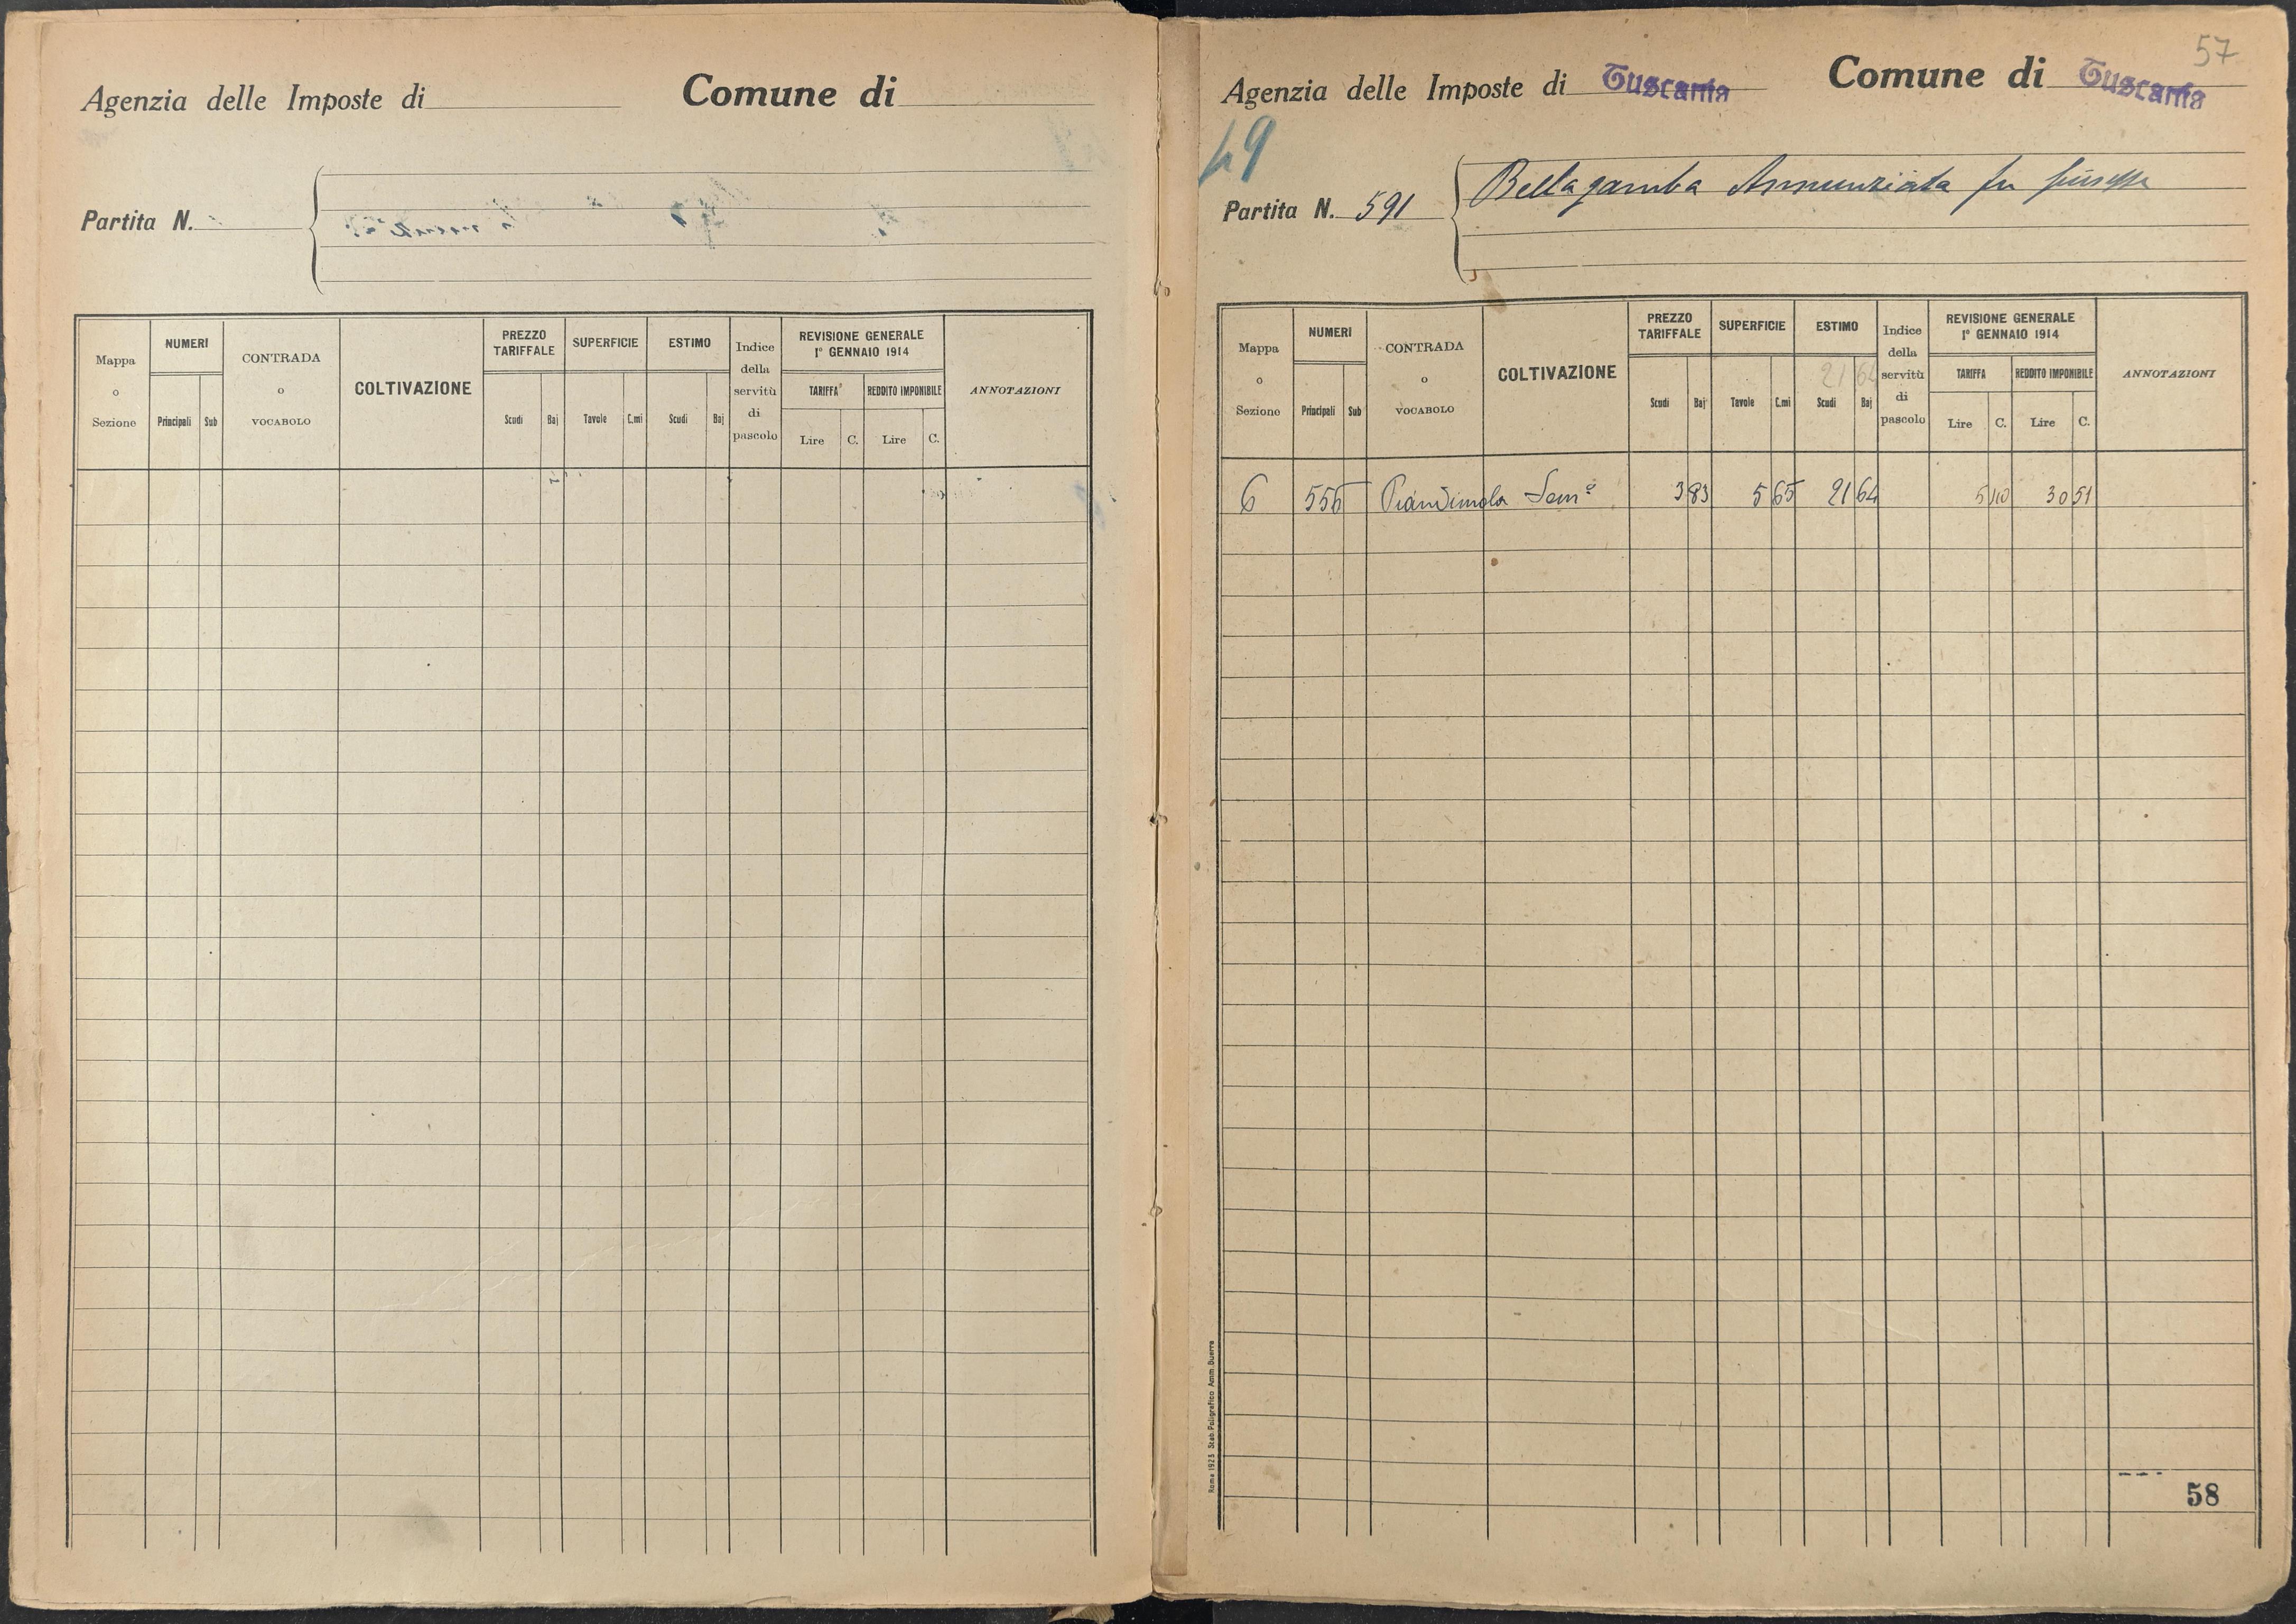 Agenzia delle Imposte di Comune di
Partita N.
Mappa o Sezione
NUMERI
Principali Sub
CONTRADA o VOCABOLO
COLTIVAZIONE
PREZZO TARIFFALE
Scudi Baj
SUPERFICIE
Tavole C.mi
ESTIMO
Scudi Baj
Indice della servitù di pascolo
REVISIONE GENERALE
1° GENNAIO 1914
TARIFFA REDDITO IMPONIBILE
Lire C. Lire C.
ANNOTAZIONI
57
Agenzia delle Imposte di Tuscania Comune di Tuscania
49
Partita N. 591 Bellagamba Annunziata fu Giuseppe
Mappa o Sezione
NUMERI
Principali Sub
CONTRADA o VOCABOLO
COLTIVAZIONE
PREZZO TARIFFALE
Scudi Baj
SUPERFICIE
Tavole C.mi
ESTIMO
21 64
Scudi Baj
Indice della servitù di pascolo
REVISIONE GENERALE
1° GENNAIO 1914
TARIFFA REDDITO IMPONIBILE
Lire C. Lire C.
ANNOTAZIONI
6 Semo 3 83 5 65 21 64 30 51
Roma 1923 Stab. Poligrafico Amm. Guerra
58